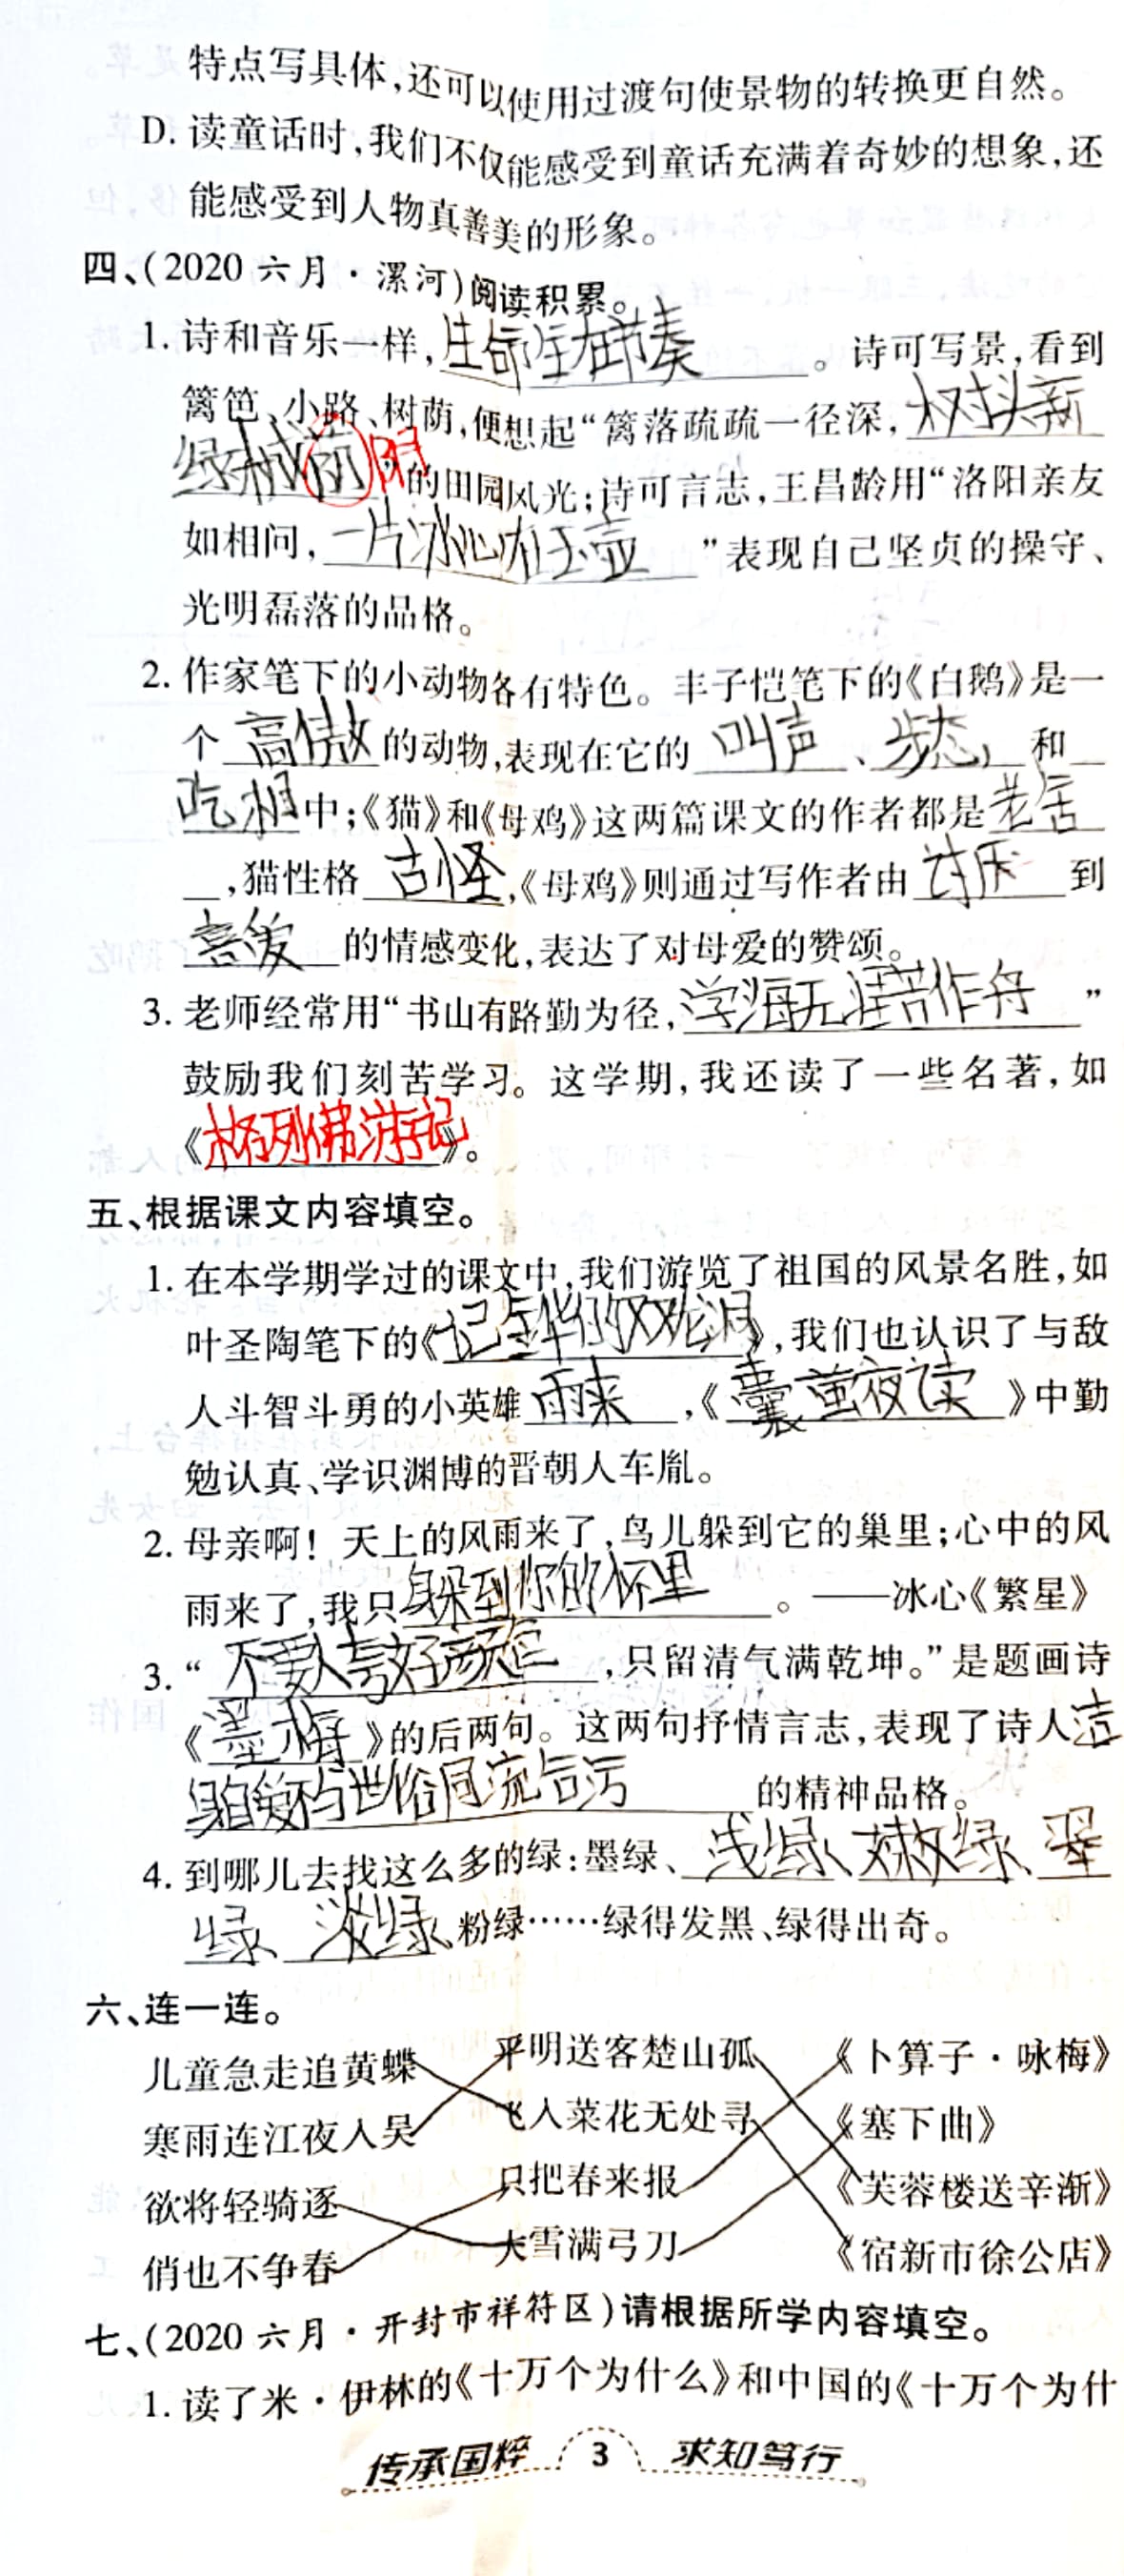 特点写具体,还可以使用过渡句使景物的转换更自然。
D. 读童话时,我们不仅能感受到童话充满着奇妙的想象,还
能感受到人物真善美的形象。
四、(2020 六月·漯河)阅读积累。
1. 诗和音乐一样,生命全在节奏。诗可写景,看到
篱笆、小路、树荫,便想起“篱落疏疏一径深,树头新
绿未成荫 阴”的田园风光;诗可言志,王昌龄用“洛阳亲友
如相问,一片冰心在玉壶”表现自己坚贞的操守、
光明磊落的品格。
2. 作家笔下的小动物各有特色。丰子恺笔下的《白鹅》是一
个高傲的动物,表现在它的叫声、步态和
吃相中;《猫》和《母鸡》这两篇课文的作者都是老舍
,猫性格古怪,《母鸡》则通过写作者由讨厌到
喜爱的情感变化,表达了对母爱的赞颂。
3. 老师经常用“书山有路勤为径,学海无涯苦作舟”
鼓励我们刻苦学习。这学期,我还读了一些名著,如
《格列佛游记》。
五、根据课文内容填空。
1. 在本学期学过的课文中,我们游览了祖国的风景名胜,如
叶圣陶笔下的《记金华的双龙洞》,我们也认识了与敌
人斗智斗勇的小英雄雨来,《囊萤夜读》中勤
勉认真、学识渊博的晋朝人车胤。
2. 母亲啊!天上的风雨来了,鸟儿躲到它的巢里;心中的风
雨来了,我只躲到你的怀里。——冰心《繁星》
3. “不要人夸好颜色,只留清气满乾坤。”是题画诗
《墨梅》的后两句。这两句抒情言志,表现了诗人洁
身自爱不与世俗同流合污的精神品格。
4. 到哪儿去找这么多的绿:墨绿、浅绿、嫩绿、翠
绿、淡绿、粉绿……绿得发黑、绿得出奇。
六、连一连。
儿童急走追黄蝶 平明送客楚山孤 《卜算子·咏梅》
寒雨连江夜入吴 飞入菜花无处寻 《塞下曲》
欲将轻骑逐 只把春来报 《芙蓉楼送辛渐》
俏也不争春 大雪满弓刀 《宿新市徐公店》
七、(2020 六月·开封市祥符区)请根据所学内容填空。
1. 读了米·伊林的《十万个为什么》和中国的《十万个为什
传承国粹 3 求知笃行